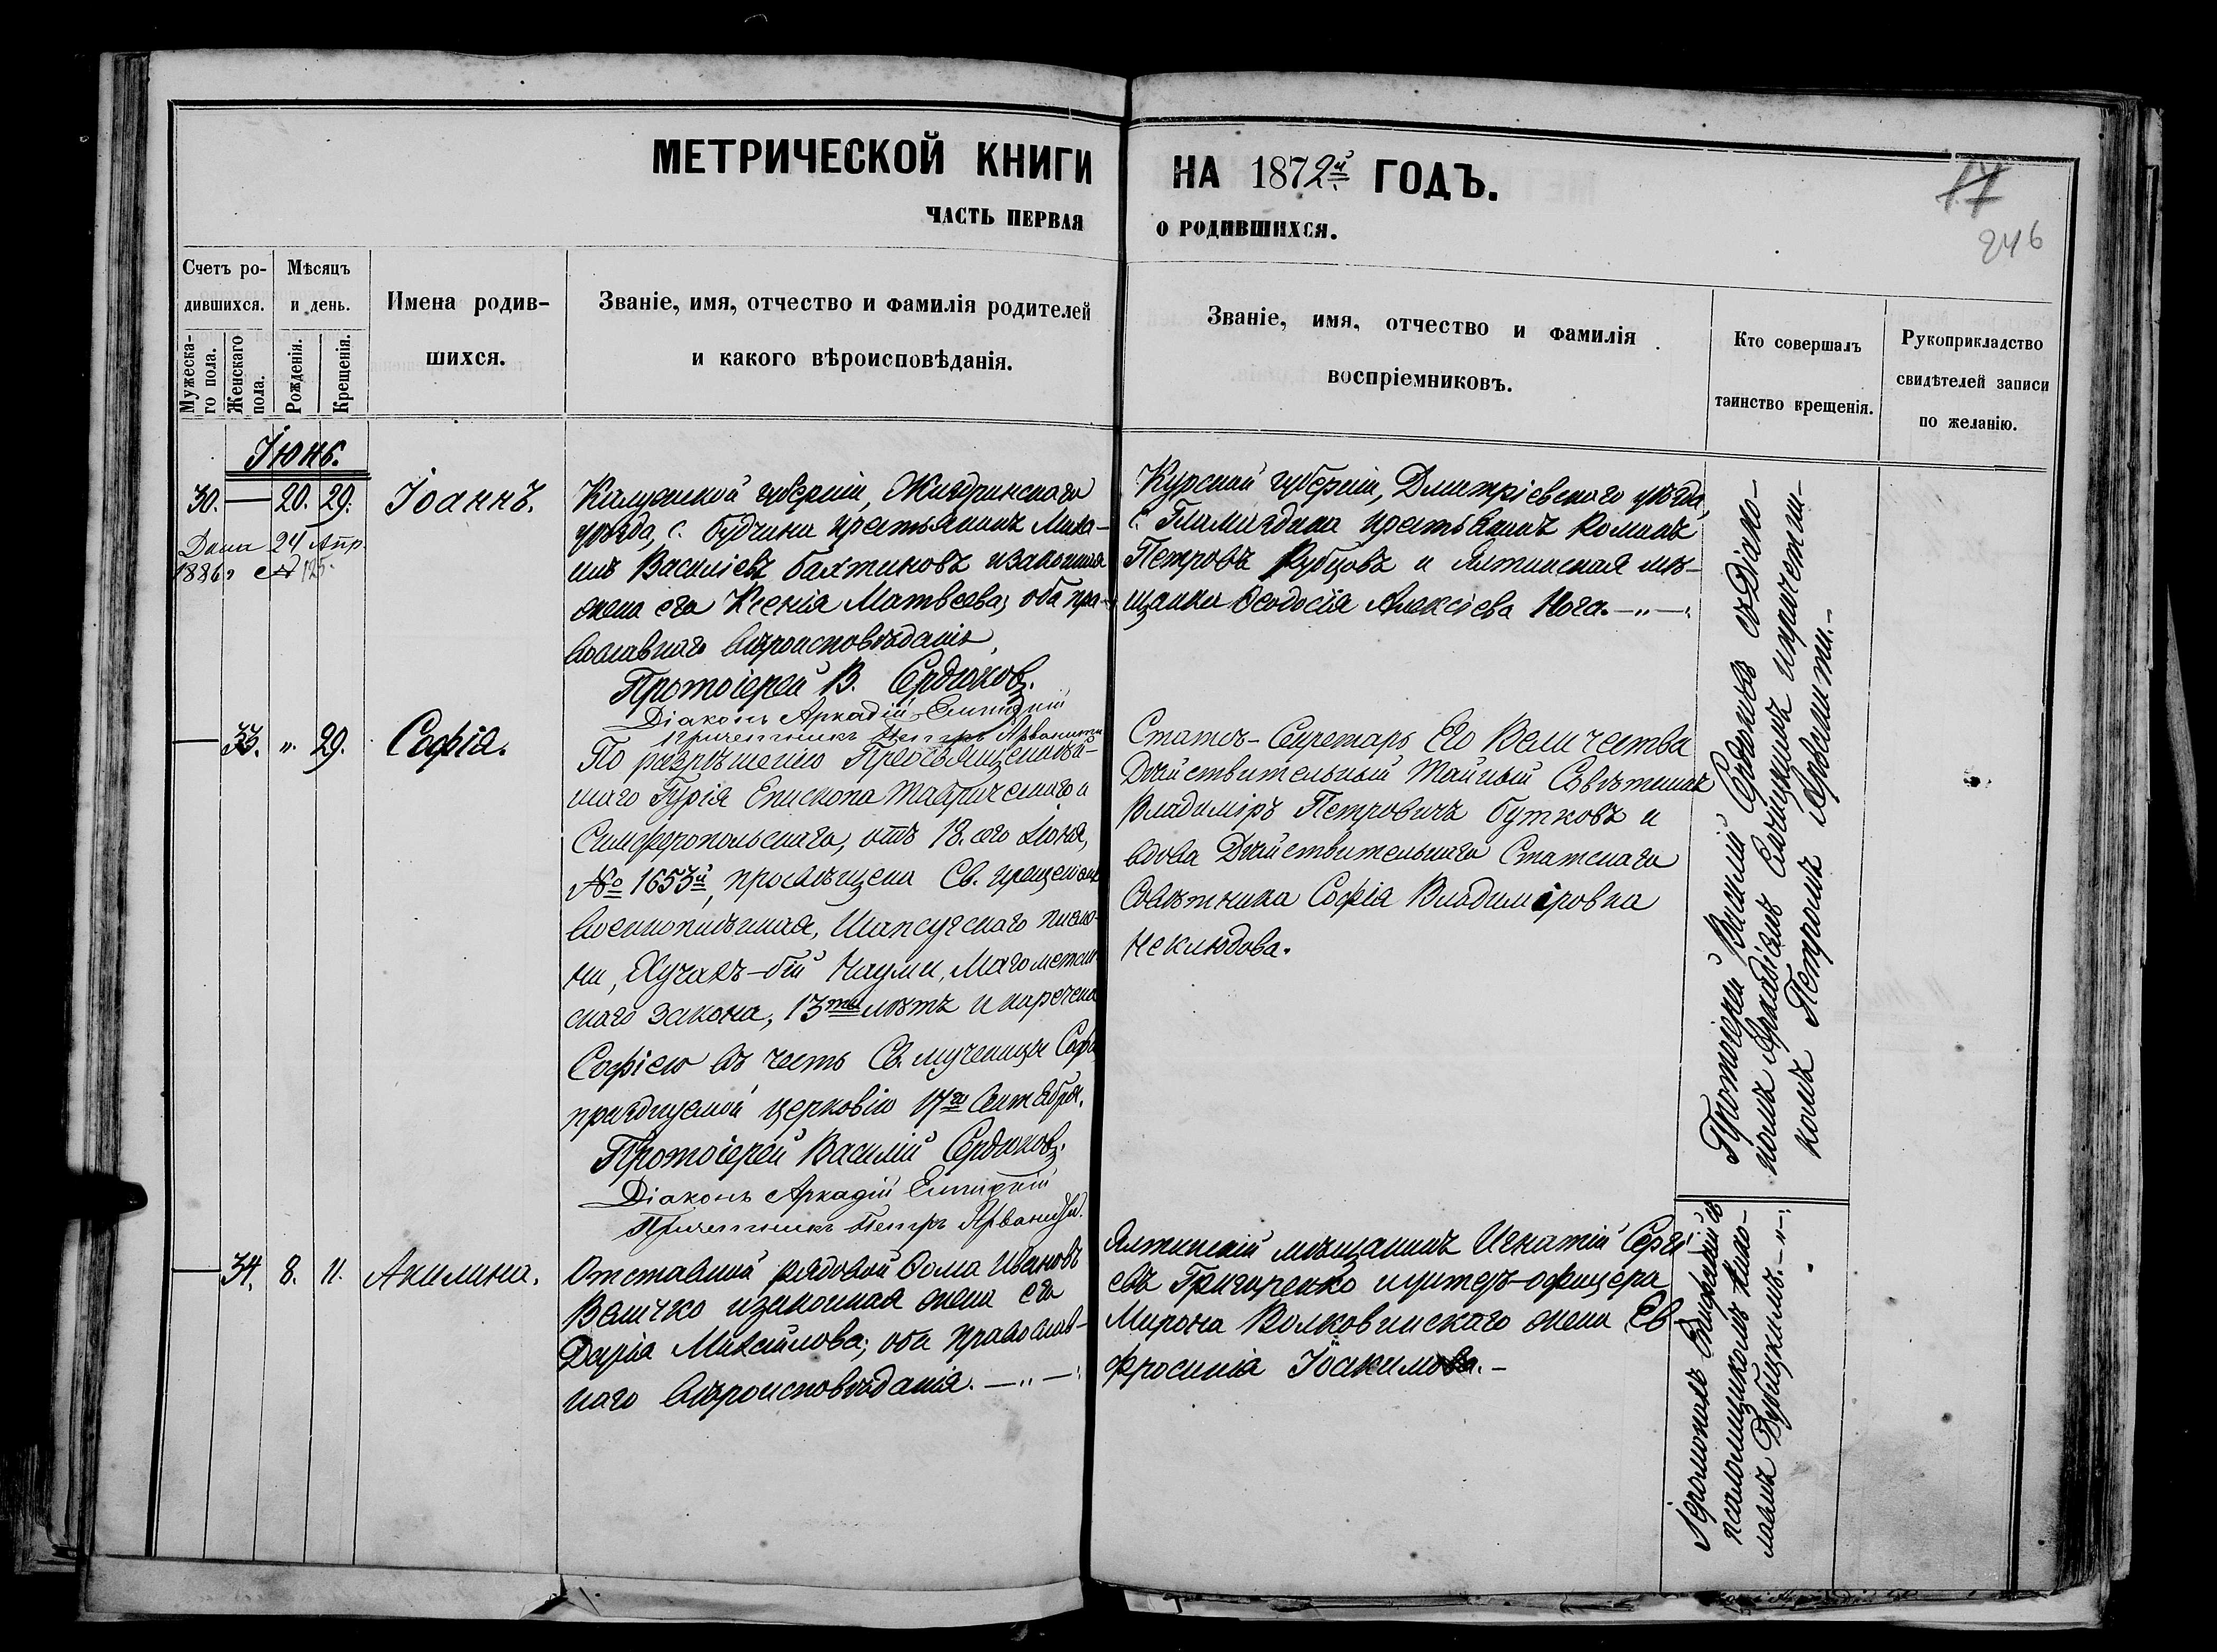 МЕТРИЧЕСКОЙ КНИГИ НА 1872й ГОДЪ.
ЧАСТЬ ПЕРВАЯ О РОДИВШИХСЯ.
17
246
Счетъ ро-
дившихся.
Мужеска-
го пола.
Женскаго
пола.
Мѣсяцъ
и день.
Рожденія.
Крещенія.
Имена родив-
шихся.
Званіе, имя, отчество и фамилія родителей
и какого вѣроисповѣданія.
Званіе, имя, отчество и фамилія
воспріемниковъ.
Кто совершалъ
таинство крещенія.
Рукоприкладство
свидѣтелей записи
по желанію.
Іюнь.
30. — 20. 29. Іоаннъ.
Дана 24 Апр.
1886 г № 125.
Калужской губерніи, Жиздринскаго
уѣзда, с. Будчина крестьянинъ Миха-
илъ Василіевъ Бахтиковъ и законная
жена его Ксенія Матвѣева; оба пра-
вославнаго вѣроисповѣданія,
Протоіерей В. Сердюковъ.
Діаконъ Аркадій
Причетникъ Петръ Арванити
Курской губерніи, Дмитріевскаго уѣзда,
с. крестьянинъ
Петровъ Рубцовъ и Ялтинская мѣ-
щанка Ѳеодосія Алексіева Нога. —„—.
— 33. „. 29. Софія.
По разрѣшенію Преосвященнѣй-
шаго Гурія Епископа Таврическаго и
Симферопольскаго, отъ 18. сего Іюня,
№ 1653й, просвѣщена Св. крещеніемъ
военноплѣнная, Шапсугскаго племе-
ни, Хучахъ-бій Науми, Магометан-
скаго закона, 13ти лѣтъ и наречена
Софіею въ честь Св. мученицы Софіи
празднуемой церковію 17го Сентября.
Протоіерей Василій Сердюковъ.
Діаконъ Аркадій
Причетникъ Петръ Арваниди.
Статсъ-Секретарь Его Величества
Дѣйствительный Тайный Совѣтникъ
Владиміръ Петровичъ Бутковъ и
вдова Дѣйствительнаго Статскаго
Совѣтника Софія Владиміровна
Неклюдова.
Протоіерей Василій Сердюковъ съ Діако-
номъ Аркадіемъ и причетни-
комъ Петромъ Арванити.—
— 34. 8. 11. Акилина.
Отставной рядовой Ѳома Ивановъ
Величко и законная жена его
Дарія Михайлова; оба православ-
наго вѣроисповѣданія. —„—.
Ялтинскій мѣщанинъ Игнатій Сергі-
евъ Григоренко и унтеръ-офицера
Мирона Волковинскаго жена Ев-
фросинія Іоакимова.—
Іеромонахъ съ
псаломщикомъ Нико-
лаемъ Дубицкимъ.—„—.